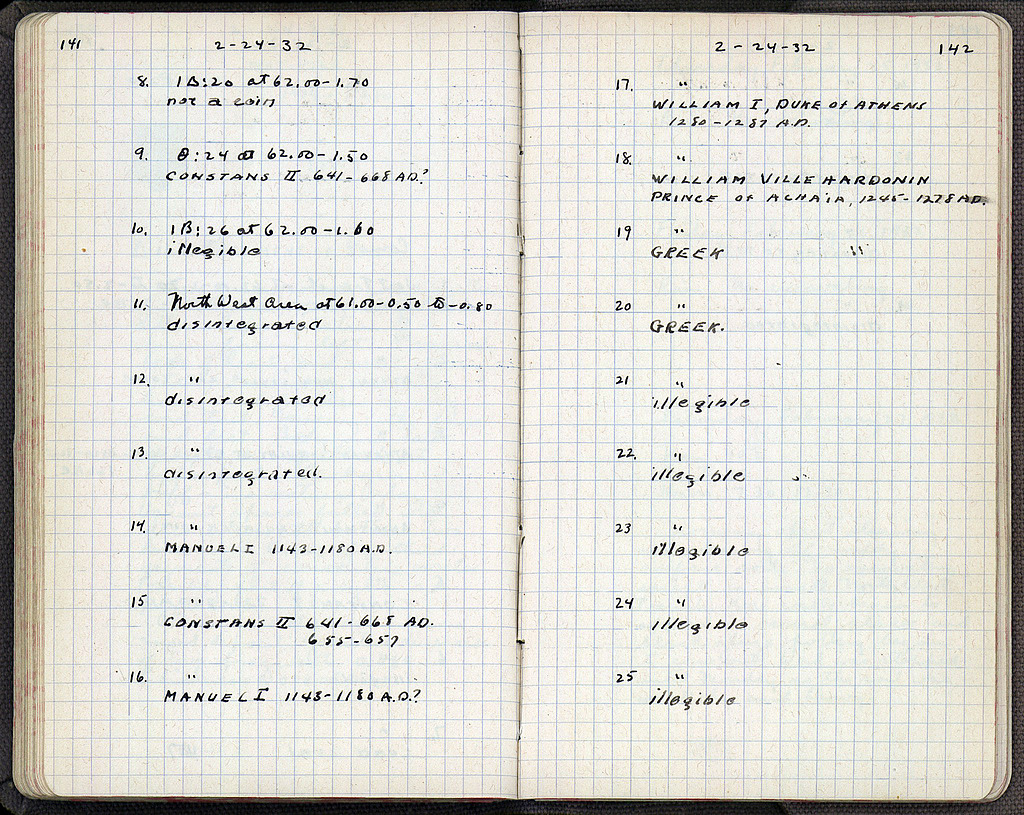 141
2-24-32
8. 1Δ:20 at 62.00-1.70
not a coin
9. Θ:24 at 62.00-1.50
CONSTANS II 641-668 AD.?
10. 1B:26 at 62.00-1.60
illegible
11. North West Area at 61.00-0.50 to -0.80
disintegrated
12. "
disintegrated
13. "
disintegrated.
14. "
MANUEL I 1143-1180 A.D.
15 "
CONSTANS II 641-668 AD.
655-657
16. "
MANUEL I 1143-1180 A.D.?
2-24-32
142
17. "
WILLIAM I, DUKE of ATHENS
1280-1287 A.D.
18. "
WILLIAM VILLE HARDONIN
PRINCE of ACHAIA, 1245-1278 AD.
19 "
GREEK "
20 "
GREEK.
21 "
illegible
22. "
illegible
23 "
illegible
24 "
illegible
25 "
illegible